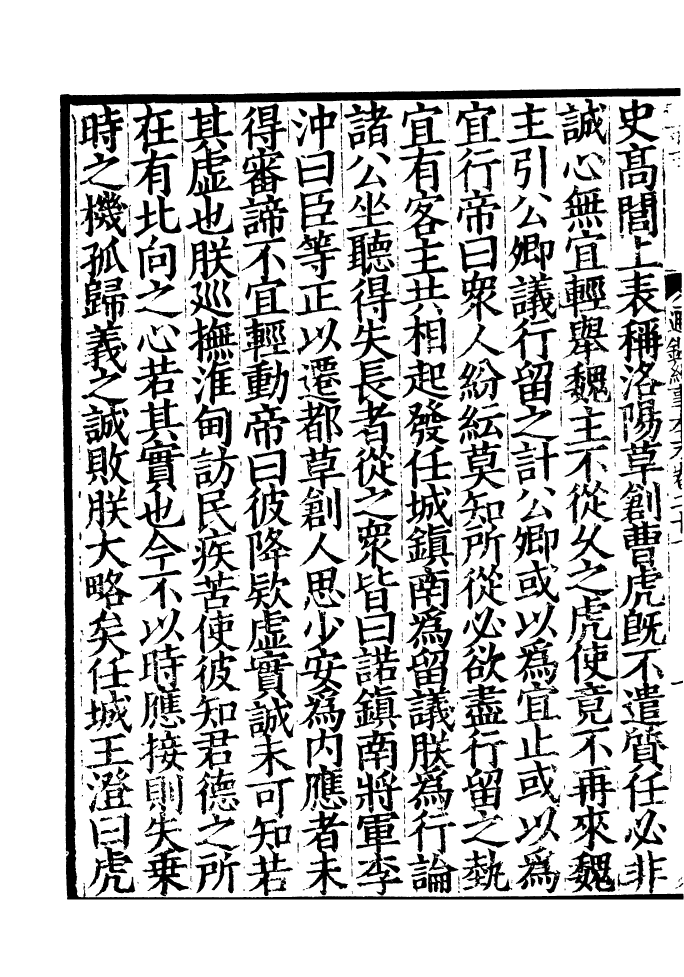 史高閭上表稱洛陽草創曹虎旣不遣質任必非
誠心無宜輕舉魏主不從乆之虎使竟不再來魏
主引公卿議行留之計公卿或以爲宜止或以爲
宜行帝曰衆人紛紜莫知所從必欲盡行留之埶
宜有客主共相起發任城鎮南爲留議朕爲行論
諸公坐聽得失長者從之衆皆曰諾鎮南將軍李
沖曰臣等正以遷都草創人思少安爲内應者未
得審諦不宜輕動帝曰彼降欵虛實誠未可知若
其虛也朕廵撫淮甸訪民疾苦使彼知君德之所
在有北向之心若其實也今不以時應接則失乗
時之機孤歸義之誠敗朕大略矣任城王澄曰虎
通鑑紀事本末卷二十